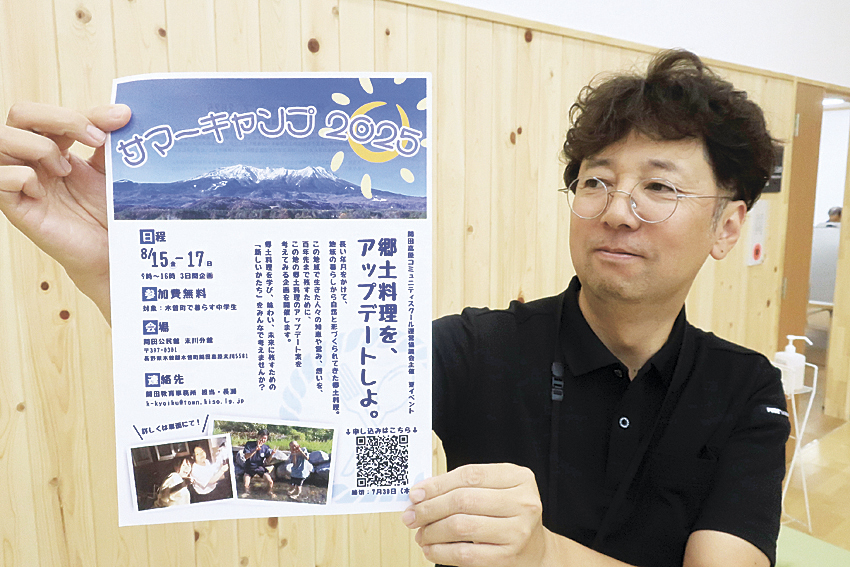 サマーキャンプ 2025
開田高原コミュニティスクール運営協議会主催 夏イベント
郷土料理を、
アップデートしよ。
長い年月をかけて、
地域の暮らしから自然と形づくられてきた郷土料理。
この地域で生きた人々の知恵や営み、想いを、
百年先まで残すために、
この地の郷土料理のアップデート案を
考えてみる企画を開催します。
郷土料理を学び、味わい、未来に残すための
「新しいかたち」をみんなで考えませんか？
日程
8/15金-17日
9時〜16時 3日間企画
参加費無料
対象：木曽町で暮らす中学生
会場
開田公民館 末川分館
〒397-0301
長野県木曽郡木曽町開田高原末川5561
連絡先
開田教育事務所 担当・長瀬
k-kyoiku@town.kiso.lg.jp
詳しくは裏面にて！
↓申し込みはこちら↓
締切：7月30日（水